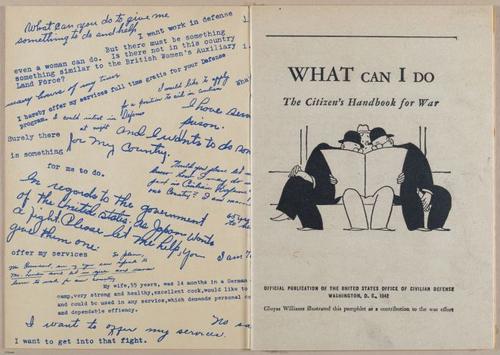 What can you do to give me
something to do and help
I want work in defense
even a woman can do.
But there must be something
something similar to the British Women's Auxiliary
Is there not in this country
Land Force?
many hours of my time
I hereby offer my services full time gratis for your Defense
program.
I would like to apply
for a position to aid in civilian
Defense
at night
I have ser
prison.
Surely there
is something
and I wants to do som
for my Country
for me to do.
In regards to the government
of the United States. As Japan wants
a fight Please let me help, you
give them one.
offer my services
My wife, 55 years, was 14 months in a German
camp, very strong and healthy, excellent cook, would like to
and could be used in any service, which demands personal
and dependable efficiency.
I want to offer my services.
I want to get into that fight.
WHAT CAN I DO
The Citizen's Handbook for War
OFFICIAL PUBLICATION OF THE UNITED STATES OFFICE OF CIVILIAN DEFENSE
WASHINGTON, D. C., 1942
Gluyas Williams illustrated this pamphlet as a contribution to the war effort